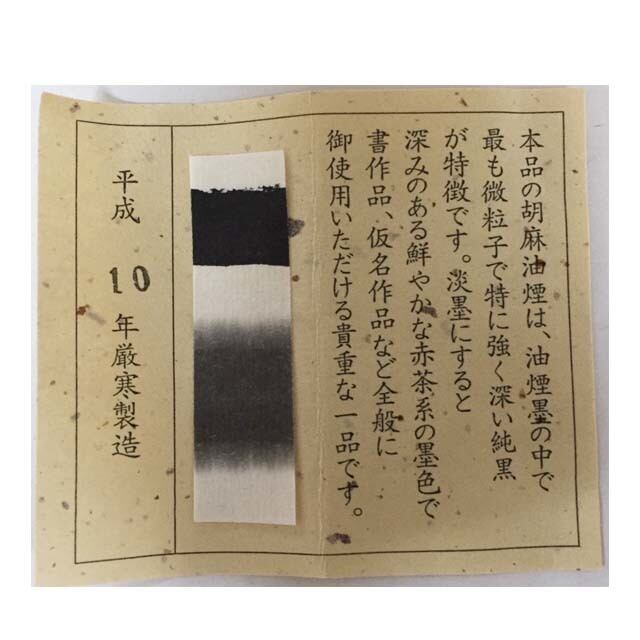 本品の胡麻油煙は、油煙墨の中で
最も微粒子で特に強く深い純黒
が特徴です。淡墨にすると
深みのある鮮やかな赤茶系の墨色で
書作品、仮名作品など全般に
御使用いただける貴重な一品です。
平成10年厳寒製造